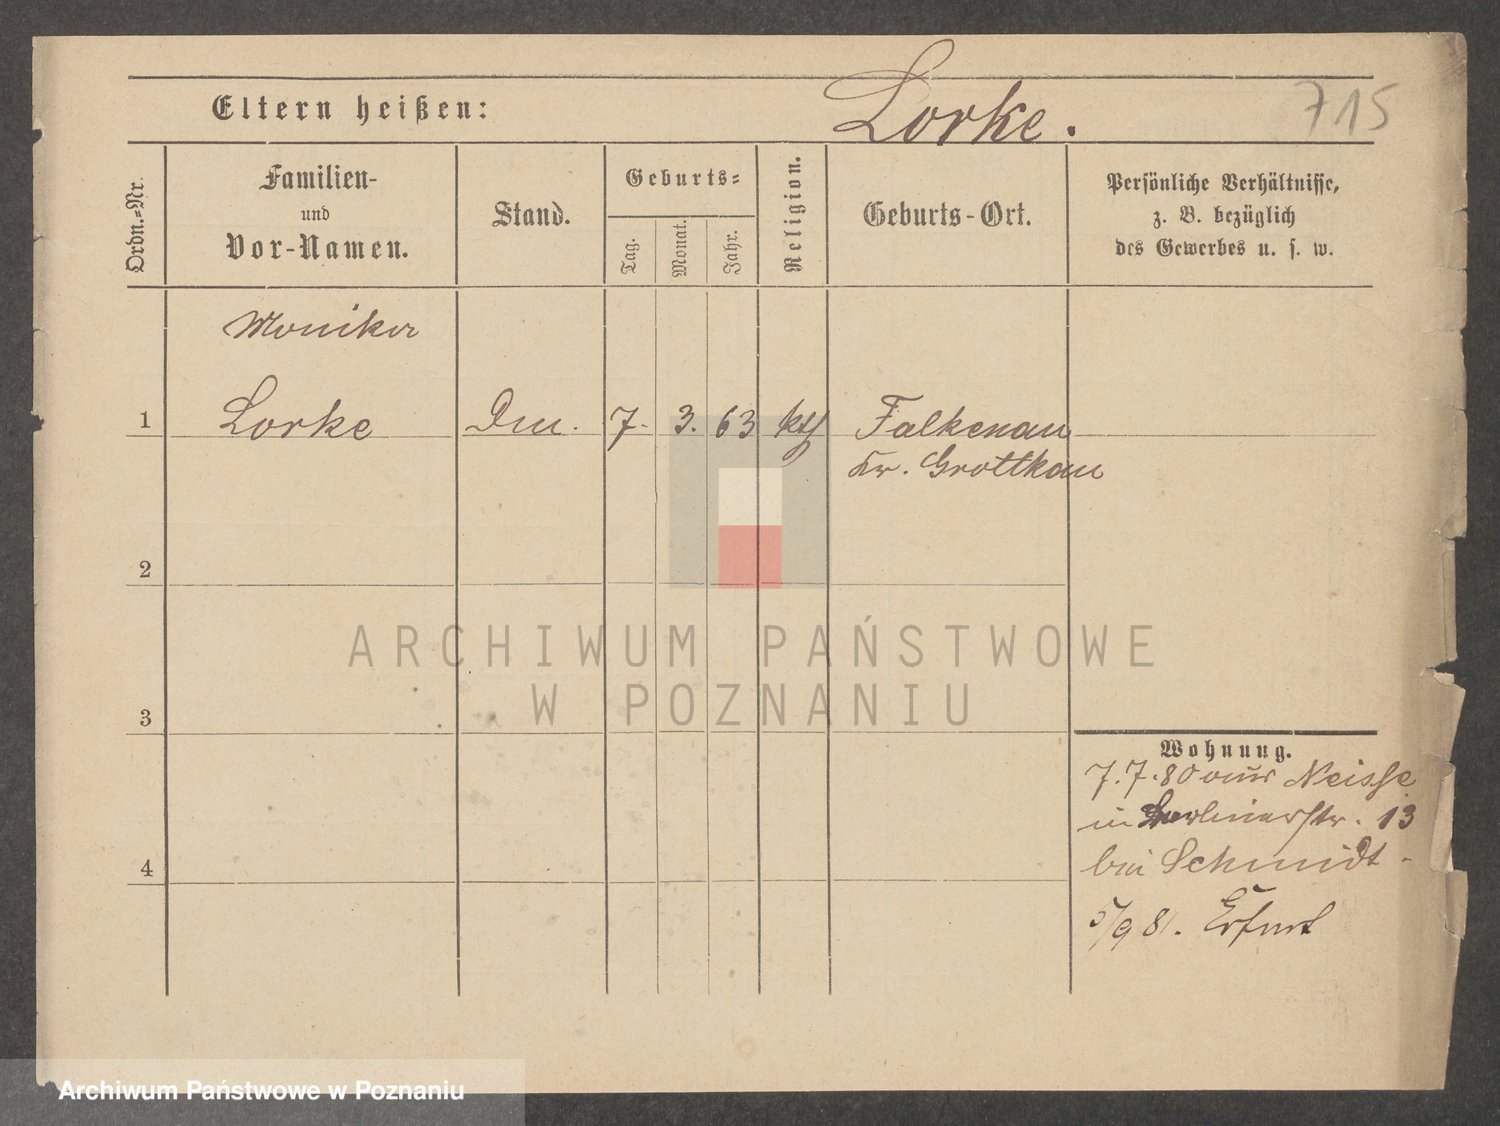 Eltern heißen: Lorke. 715
Ordn.-Nr.
Familien-
und
Vor-Namen.
Stand.
Geburts-
Tag.
Monat.
Jahr.
Religion.
Geburts-Ort.
Persönliche Verhältnisse,
z. B. bezüglich
des Gewerbes u. s. w.
Monika
1 Lorke 7. 3. 63 kth Falkenau
Kr. Grottkau
2
3
4
Wohnung.
7.7.80 aus Neisse
in Berlinerstr. 13
bei Schmidt.
5/9 81. Erfurt
ARCHIWUM PAŃSTWOWE
W POZNANIU
Archiwum Państwowe w Poznaniu